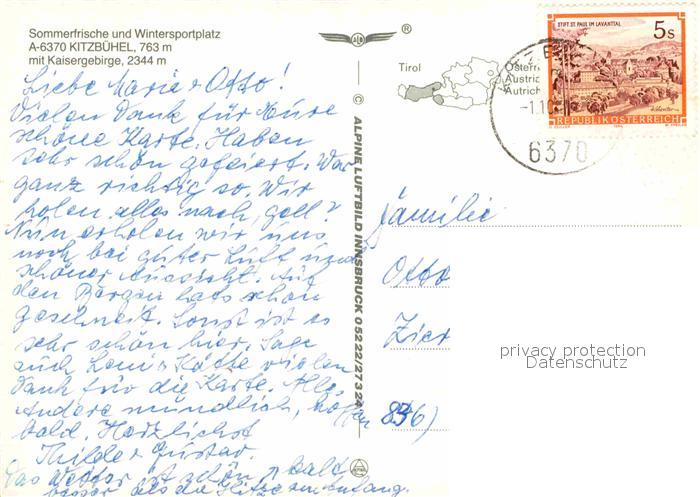 Sommerfrische und Wintersportplatz
A-6370 KITZBÜHEL, 763 m
mit Kaisergebirge, 2344 m
®
Tirol
Österr
Austric
Autrich
STIFT ST. PAUL IM LAVANTTAL
5s
REPUBLIK ÖSTERREICH
6370
© ALPINE LUFTBILD INNSBRUCK 05222/27324
Liebe Maria + Otto!
Vielen Dank für Eure
schöne Karte. Haben
sehr schön gefeiert. War
ganz richtig so. Wir
holen alles nach, gell?
Nun erholen wir uns
noch bei guter Luft und
schöner Aussicht. Auf
den Bergen hats schon
geschneit. Sonst ist es
sehr schön hier. Sage
auch Käthe vielen
Dank für die Karte. Alles
Andere mündlich, hoffen
bald. Herzlichst
Thilde + Gustav.
Das Wetter ist schön + kalt
besser als die Hitze am Anfang.
Familie
Otto
Zier
privacy protection
Datenschutz